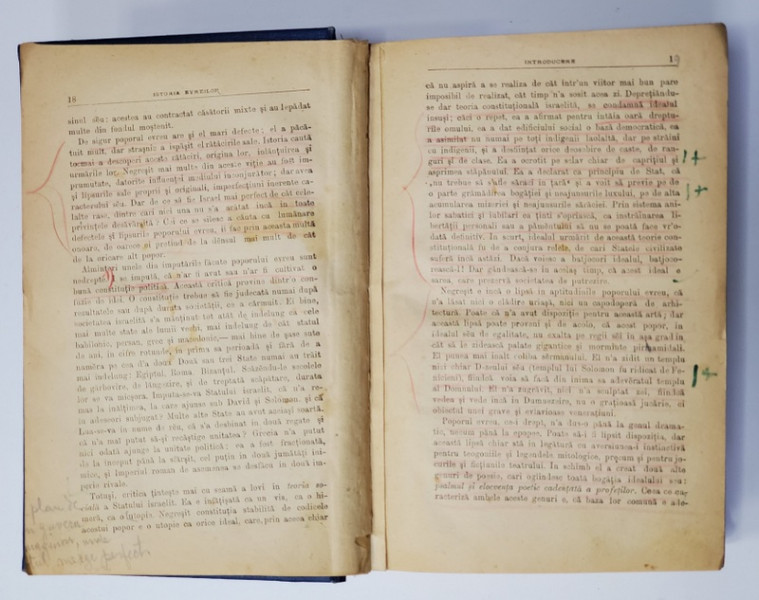 18
ISTORIA EVREILOR
sinul său; acestea au contractat căsătorii mixte și au lepădat
multe din fondul moștenit.
De sigur poporul evreu are și el mari defecte; el a păcă-
tuit mult, dar strașnic a ispășit el rătăcirile sale. Istoria caută
tocmai a descoperi aceste rătăciri, origina lor, înlănțuirea și
urmările lor. Negreșit mai multe din aceste viții au fost îm-
prumutate, datorite influenței mediului înconjurător; dar avea
și lipsurile sale proprii și originali, imperfecțiuni inerente ca-
racterului său. Dar de ce să fie Israel mai perfect de cât cele-
lalte rase, dintre cari nici una nu s'a arătat încă în toate
privințele desăvârșită? Cei ce se silesc a căuta cu lumânare
defectele și lipsurile poporului evreu, îi fac prin aceasta multă
onoare, de oarece ei pretind de la dânsul mai mult de cât
de la oricare alt popor.
Almintrea unele din imputările făcute poporului evreu sunt
nedrepte. I se impută, că n'ar fi avut sau n'ar fi cultivat o
bună constituție politică. Această critică provine dintr'o con-
fuzie de idei. O constituție trebuie să fie judecată numai după
rezultatele sau după durata societății, ce a cârmuit. Ei bine,
societatea israelită s'a menținut tot atât de îndelung ca cele
mai multe state ale lumii vechi, mai îndelung de cât statul
babilonic, persan, grec și macedonic,— mai bine de șase sute
de ani, în cifre rotunde, în prima sa perioadă și fără de a
număra pe cea d'a doua. Două sau trei State numai au trăit
mai îndelung: Egiptul, Roma, Bizanțul. Scăzându-le secolele
de gârbovire, de lâncezire, și de treptată scăpătare, durata
lor se va micșora. Imputa-se-va Statului israelit, că n'a re-
mas la înălțimea, la care ajunse sub David și Solomon, și că
în adeseori subjugat? Multe alte State au avut aceiași soartă.
Lua-se-va în nume de rău, că s'a desbinat în două regate și
că n'a mai putut să-și recâștige unitatea? Grecia n'a putut
nici odată ajunge la unitate politică; ea a fost fracționată,
de la început până la sfârșit, cel puțin în două jumătăți ini-
mice, și Imperiul roman de asemenea se desfăcu în două im-
perie rivale.
Totuși, critica țintește mai cu seamă a lovi în teoria so-
cială a Statului israelit. Ea e înfățișată ca un vis, ca o hi-
meră, ca o utopie. Negreșit constituția stabilită de codicele
acestui popor e o utopie ca orice ideal, care, prin acea chiar
perfect
INTRODUCERE
19
că nu aspiră a se realiza de cât într'un viitor mai bun pare
imposibil de realizat, cât timp n'a sosit acea zi. Deprețiându-
se dar teoria constituțională israelită, se condamnă idealul
însuși; căci o repet, ea a afirmat pentru întâia oară dreptu-
rile omului, ea a dat edificiului social o bază democratică, ea
a asimilat nu numai pe toți indigenii laolaltă, dar pe străini
cu indigenii, și a desființat orice deosebire de caste, de ran-
guri și de clase. Ea a ocrotit pe sclav chiar de caprițiul și
asprimea stăpânului. Ea a declarat ca principiu de Stat, că
„nu trebue să fie săraci în țară“ și a voit să previe pe de
o parte grămădirea bogăției și neajunsurile luxului, pe de alta
acumularea mizeriei și neajunsurile sărăciei. Prin sistema ani-
lor sabatici și iubilari ea ținti s'oprească, ca înstrăinarea li-
bertății personali sau a pământului să nu se poată face vr'o-
dată definitiv. In scurt, idealul urmărit de această teorie con-
stituțională fu de a conjura relele, de cari Statele civilizate
suferă încă astăzi. Dacă voiesc a batjocori idealul, batjoco-
rească-l! Dar gândească-se în același timp, că acest ideal e
sarea, care preservă societatea de putrezire.
Negreșit e încă o lipsă în aptitudinile poporului evreu, că
n'a lăsat nici o clădire uriașă, nici un capodoperă de arhi-
tectură. Poate că n'a avut dispoziție pentru această artă; dar
această lipsă poate proveni și de acolo, că acest popor, în
idealul său de egalitate, nu exalta pe regii săi în așa grad în
cât să le ridească palate gigantice și morminte piramidali.
El punea mai înalt coliba sărmanului. El n'a zidit un templu
nici chiar D-zeului său (templul lui Solomon fu ridicat de Fe-
nicieni), fiindcă voia să facă din inima sa adevăratul templu
al Domnului. El n'a zugrăvit, nici n'a sculptat zei, fiindcă
vedea și vede încă în Dumnezeire, nu o grațioasă jucărie, ci
obiectul unei grave și evlavioase venerațiuni.
Poporul evreu, ce-i drept, n'a dus-o până la genul drama-
tic, necum până la epopee. Poate să-i fi lipsit dispoziția, dar
această lipsă chiar stă în legătură cu aversiunea-i instinctivă
pentru teogoniile și legendele mitologice, precum și pentru jo-
curile și ficțiunile teatrului. In schimb el a creat două alte
genuri de poesie, cari oglindesc toată bogăția idealului său:
psalmul și elocvența poetic cadențată a profeților. Ceea ce ca-
racteriză ambele aceste genuri e, că baza lor comună e ade-